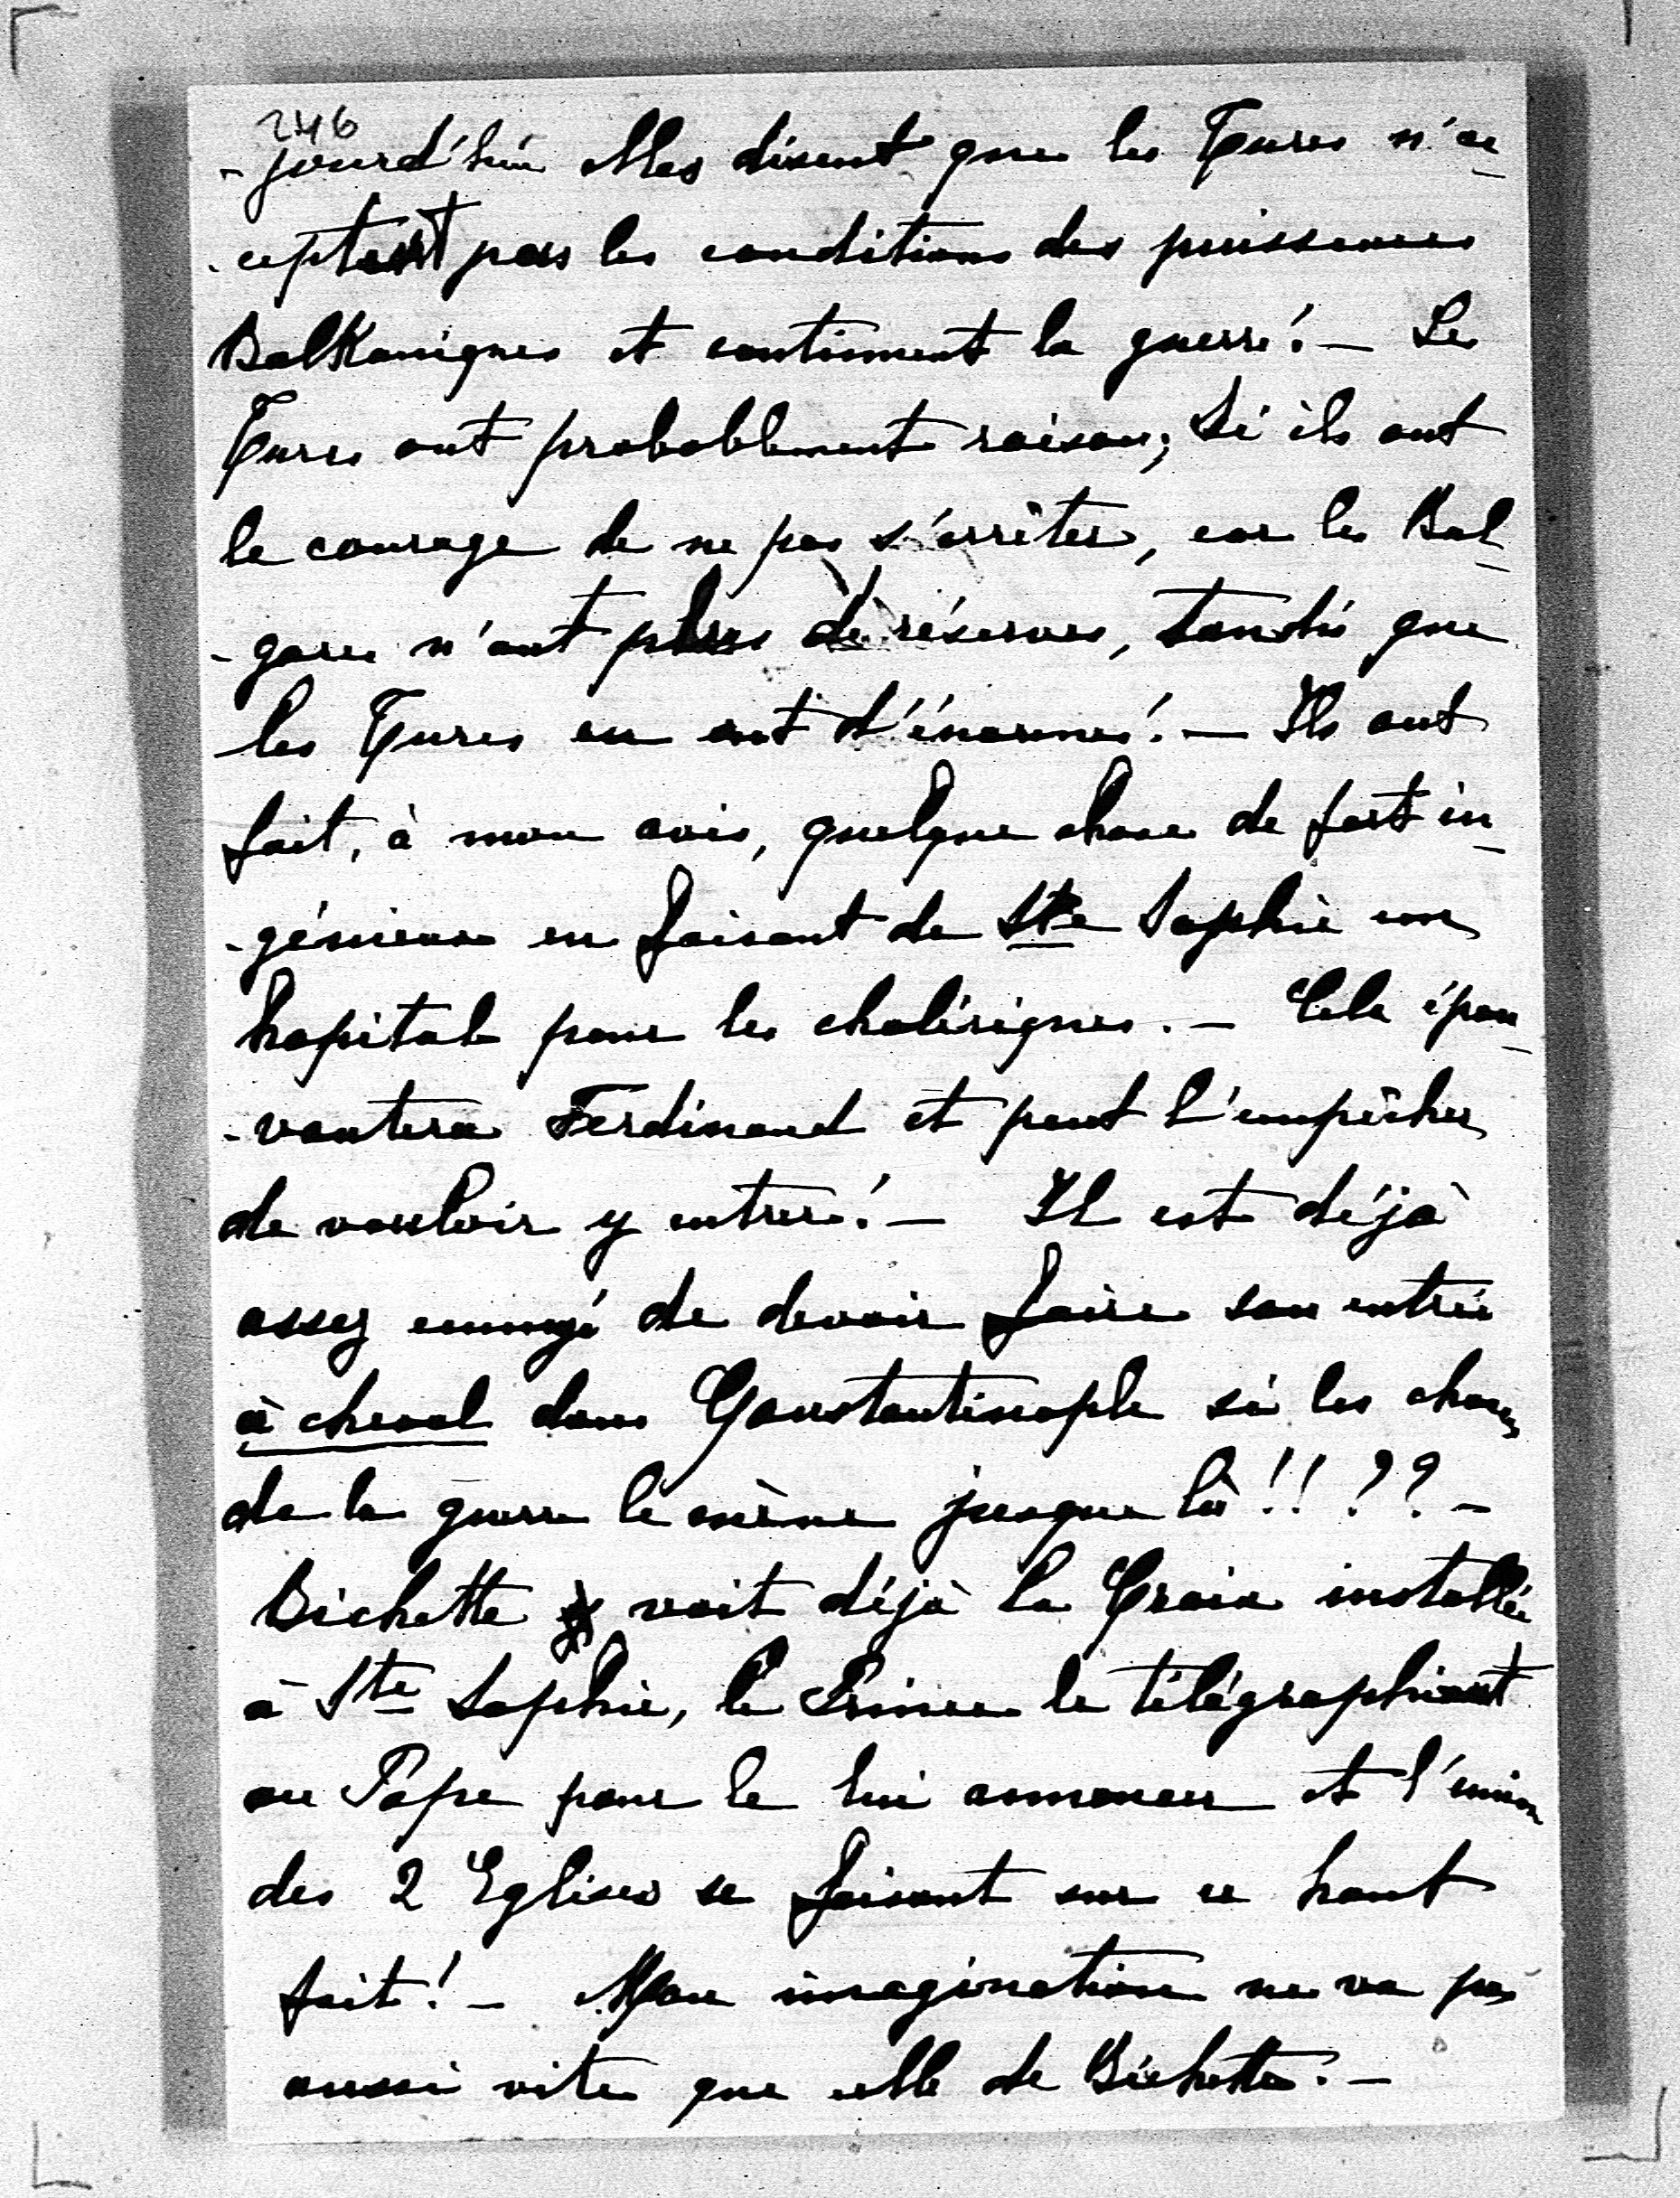 246
-jourd'hui elles disent que les Turcs n'ac-
-ceptent pas les conditions des puissances
Balkaniques et continuent la guerre! — Les
Turcs ont probablement raison; Si ils ont
le courage de ne pas s'arrêter, car les Bul-
-gares n'ont plus de réserves, tandis que
les Turcs en ont d'énormes! — Ils ont
fait, à mon avis, quelque chose de fort in-
-génieux en faisant de Ste Sophie un
hopital pour les cholériques. — Cela épou-
-vantera Ferdinand et peut l'empêcher
de vouloir y entrer! — Il est déjà
assez ennuyé de devoir faire son entrée
à cheval dans Constantinople si les choses
de la guerre le mène jusque là!! ?? —
Bichette voit déjà la Croix installée
à Ste Sophie, le Prince le télégraphiant
au Pape pour le lui annoncer et l'union
des 2 Eglises se faisant sur ce haut
fait! — Mon imagination ne va pas
aussi vite que celle de Bichette. —